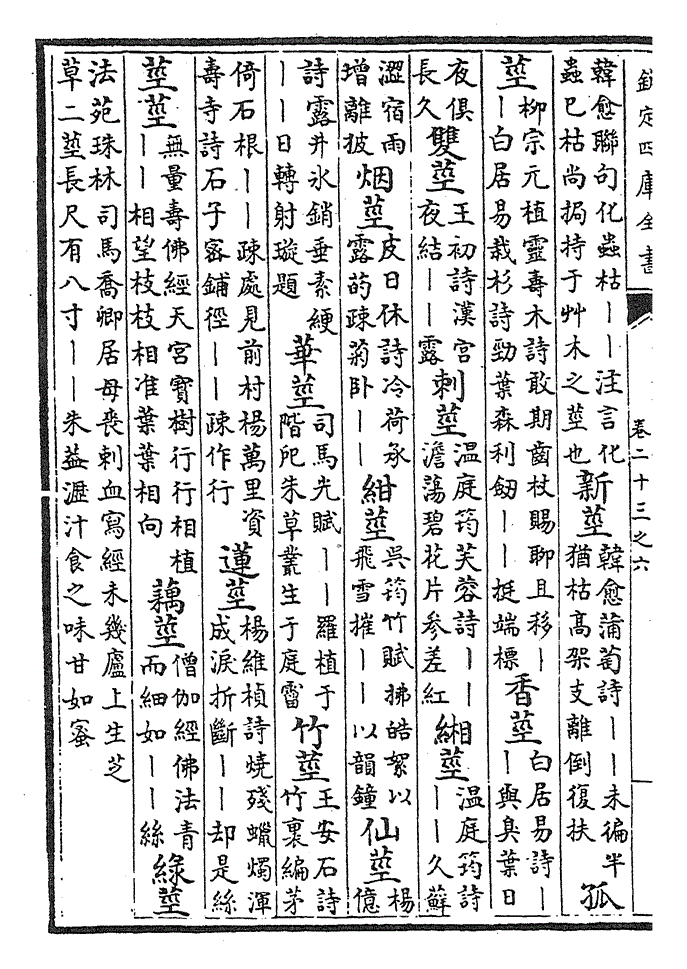 欽定四庫全書 卷二十三之六
韓愈聯句化蟲枯——注言化蟲已枯尚挶持于艸木之莖也新莖韓愈蒲萄詩——未徧半猶枯高架支離倒復扶孤
莖柳宗元植靈壽木詩敢期齒杖賜聊且移——白居易栽杉詩勁葉森利劒——挺端標香莖白居易詩——與臭葉日
夜俱長久雙莖王初詩漢宮夜結——露刺莖温庭筠芙蓉詩——澹蕩碧花片參差紅緗莖温庭筠詩——久蘚
澀宿雨增離披烟莖皮日休詩冷荷承露菂疎菊卧——紺莖吳筠竹賦拂皓絮以飛雪摧——以韻鐘仙莖楊億
詩露井氷銷垂素綆——日轉射璇題華莖司馬光賦——羅植于階戺朱草叢生于庭霤竹莖王安石詩竹裏編茅
倚石根——疎處見前村楊萬里資壽寺詩石子密鋪徑——疎作行蓮莖楊維楨詩燒殘蠟燭渾成淚折斷——却是絲
莖莖無量壽佛經天宮寶樹行行相植——相望枝枝相准葉葉相向藕莖僧伽經佛法青而細如——絲綠莖
法苑珠林司馬喬卿居母喪刺血寫經未幾廬上生芝草二莖長尺有八寸——朱葢瀝汁食之味甘如蜜